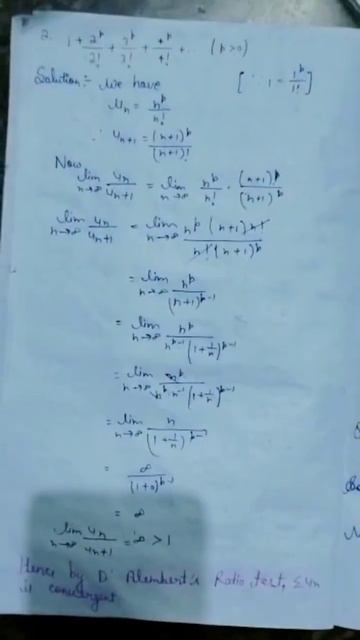 2. 1 + 2^p/2! + 3^p/3! + 4^p/4! + ... (p>0)
Solution:- We have [∵ 1 = 1^p/1!]
u_n = n^p/n!
∴ u_{n+1} = (n+1)^p/(n+1)!
Now
lim_{n→∞} u_n/u_{n+1} = lim_{n→∞} n^p/n! · (n+1)!/(n+1)^p
lim_{n→∞} u_n/u_{n+1} = lim_{n→∞} n^p (n+1) n!/n! (n+1)^p
= lim_{n→∞} n^p/(n+1)^{p-1}
= lim_{n→∞} n^p/n^{p-1}(1+1/n)^{p-1}
= lim_{n→∞} n^p/n^p·n^{-1}(1+1/n)^{p-1}
= lim_{n→∞} n/(1+1/n)^{p-1}
= ∞/(1+0)^{p-1}
= ∞
lim_{n→∞} u_n/u_{n+1} = ∞ > 1
Hence by D' Alembert's Ratio test, Σu_n
is convergent